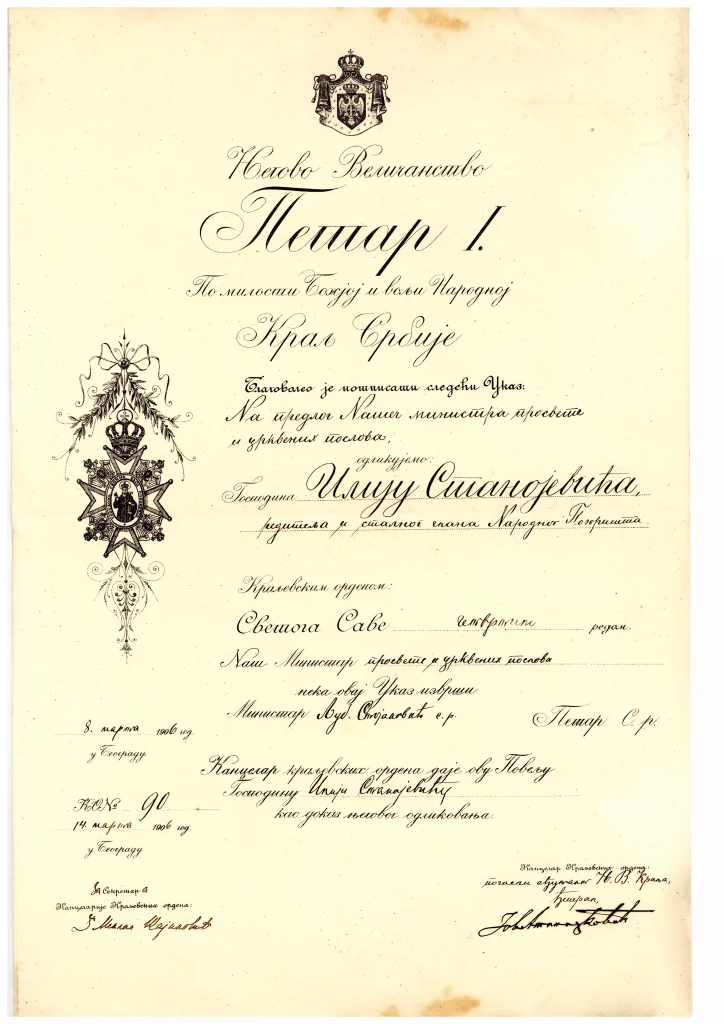 Његово Величанство
Петар I.
По милости Божјој и вољи Народној
Краљ Србије
Благоволео је потписати следећи Указ:
На предлог Нашег министра просвете
и црквених послова,
одликујемо:
Господина Илију Станојевића,
редитеља и сталног члана Народног Позоришта
Краљевским орденом:
Светога Саве четвртим редом.
Наш Министар просвете и црквених послова
нека овај Указ изврши
Министар Љуб. Стојановић с.р.
Петар С.р.
8. марта 1906 год.
у Београду
Канцелар краљевских ордена даје ову Повељу
Господину Илији Станојевићу
као доказ његовог одликовања.
К.О.№ 90
14. марта 1906 год.
у Београду
За Секретара
Канцеларије Краљевских ордена:
Канцелар Краљевских ордена:
почасни ађутант Њ. В. Краља,
ђенерал,